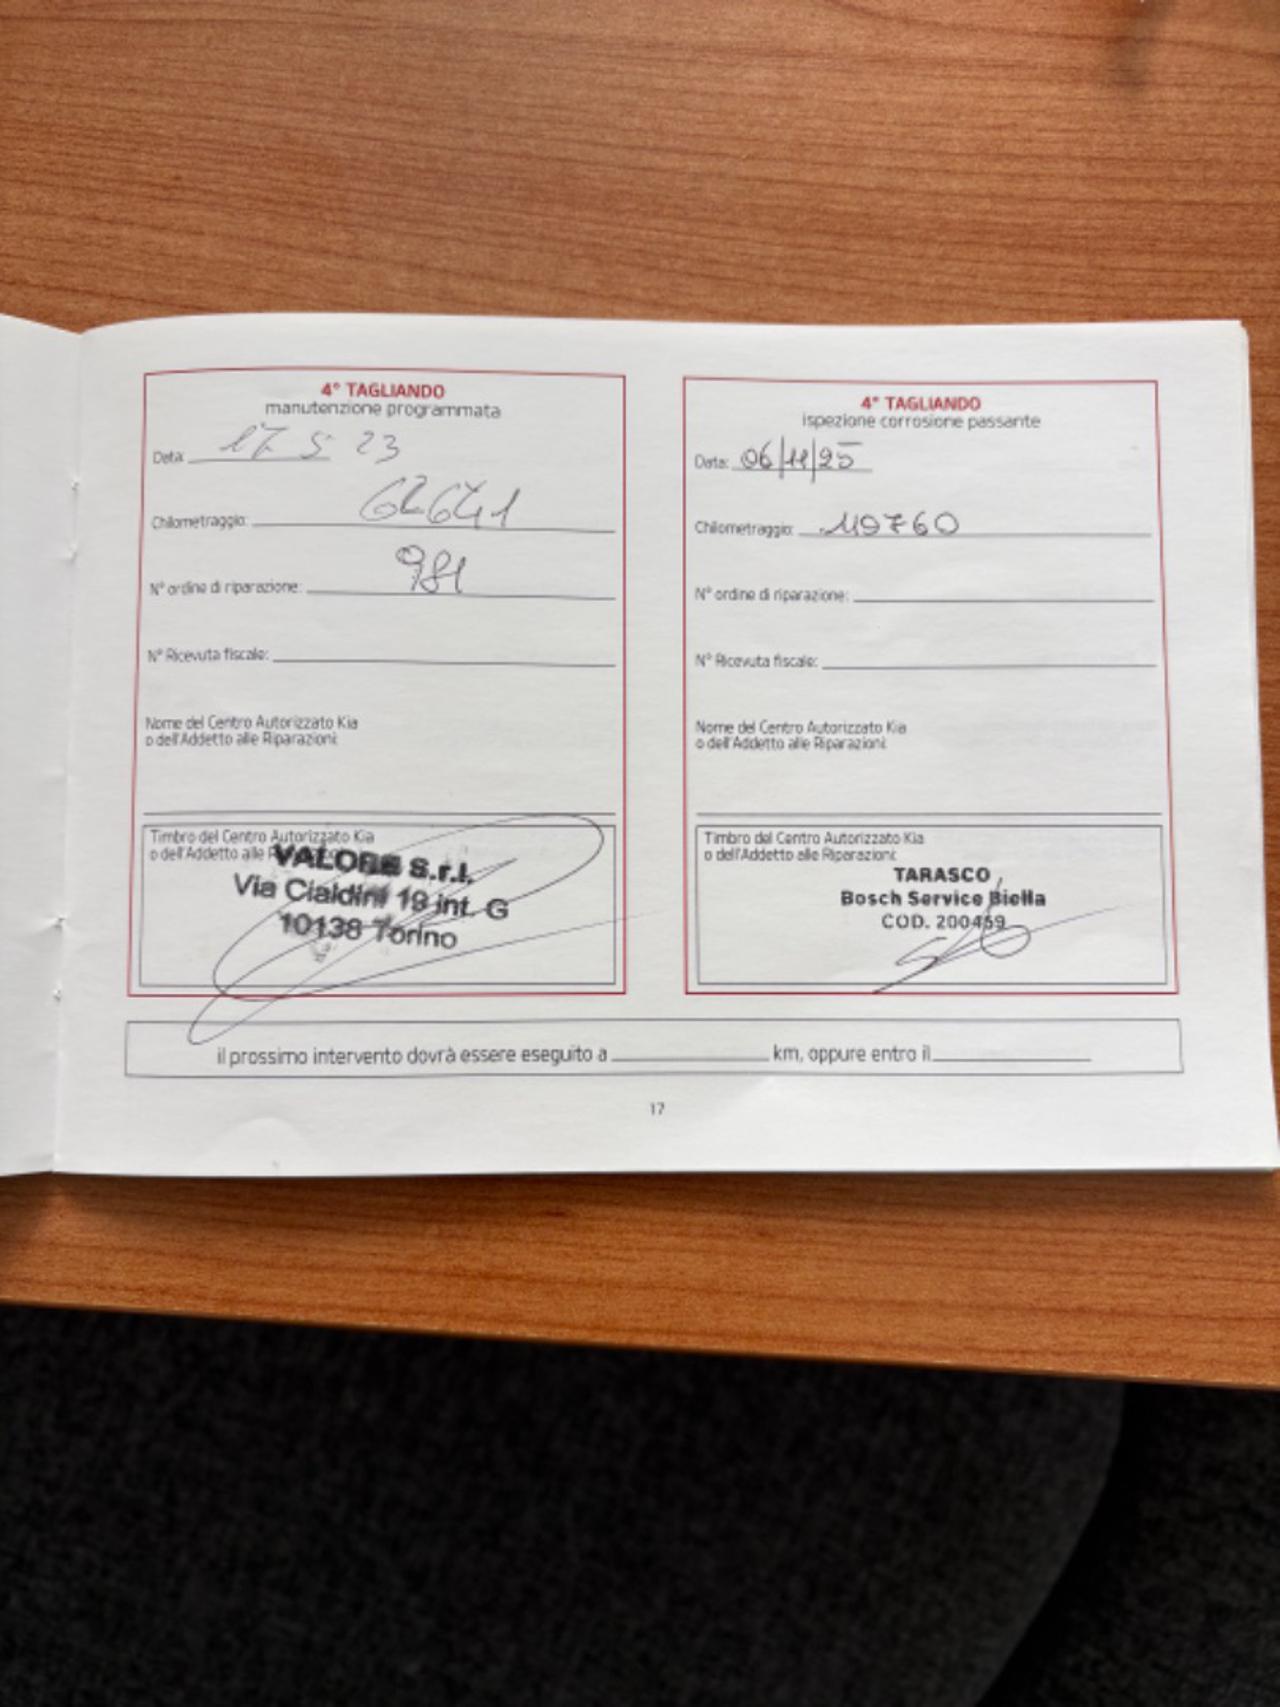 4° TAGLIANDO
manutenzione programmata
Data: 17 5 23
Chilometraggio: 62641
N° ordine di riparazione: 981
N° Ricevuta fiscale:
Nome del Centro Autorizzato Kia
o dell'Addetto alle Riparazioni:
Timbro del Centro Autorizzato Kia
o dell'Addetto alle
VALORE S.r.l.
Via Cialdini 19 int. G
10138 Torino
4° TAGLIANDO
ispezione corrosione passante
Data: 06/11/25
Chilometraggio: 119760
N° ordine di riparazione:
N° Ricevuta fiscale:
Nome del Centro Autorizzato Kia
o dell'Addetto alle Riparazioni:
Timbro del Centro Autorizzato Kia
o dell'Addetto alle Riparazioni:
TARASCO
Bosch Service Biella
COD. 200459
il prossimo intervento dovrà essere eseguito a km, oppure entro il
17